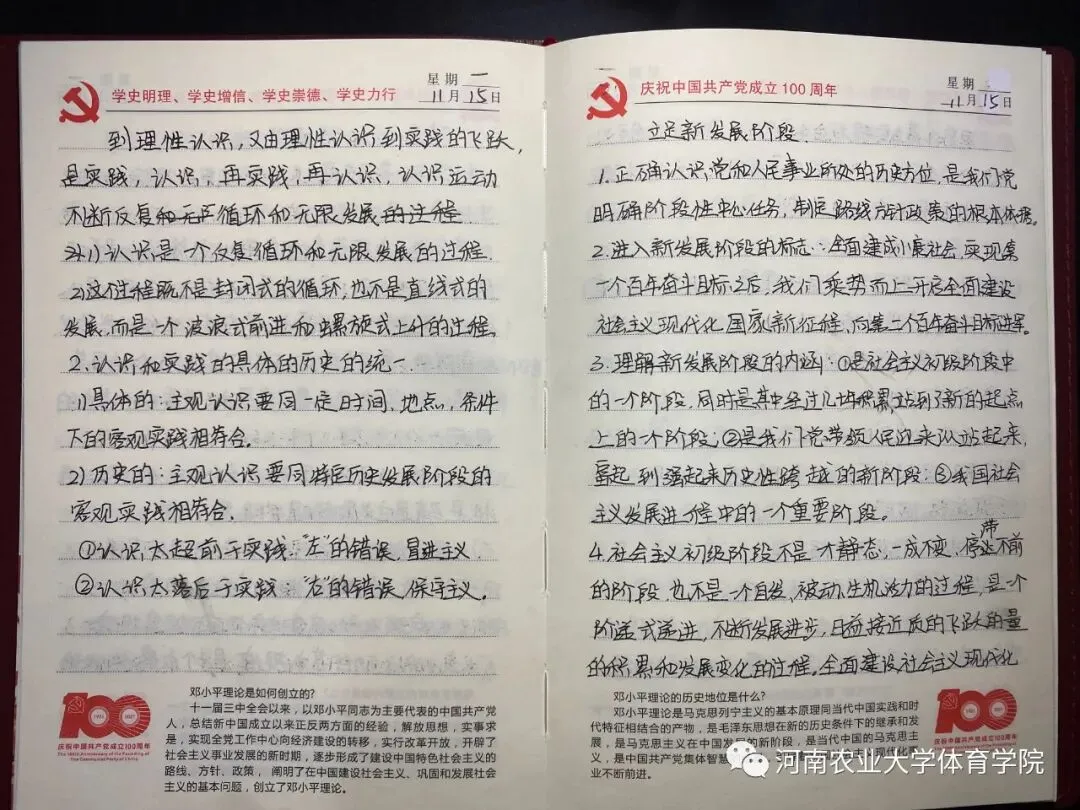 学史明理、学史增信、学史崇德、学史力行
星期 一
11月15日
到理性认识,又由理性认识到实践的飞跃,
是实践,认识,再实践,再认识,认识运动
不断反复和无限循环和无限发展的过程
1)认识是一个反复循环和无限发展的过程.
2)这个过程既不是封闭式的循环,也不是直线式的
发展,而是一个波浪式前进和螺旋式上升的过程。
2.认识和实践的具体的历史的统一.
1)具体的:主观认识要同一定时间,地点,条件
下的客观实践相符合。
2)历史的:主观认识要同特定历史发展阶段的
客观实践相符合.
①认识太超前于实践:"左"的错误,冒进主义.
②认识太落后于实践:"右"的错误,保守主义.
100
1921 2021
庆祝中国共产党成立100周年
The 100th Anniversary of the Founding of
The Communist Party of China
邓小平理论是如何创立的?
十一届三中全会以来,以邓小平同志为主要代表的中国共产党
人,总结新中国成立以来正反两方面的经验,解放思想,实事求
是,实现全党工作中心向经济建设的转移,实行改革开放,开辟了
社会主义事业发展的新时期,逐步形成了建设中国特色社会主义的
路线、方针、政策,阐明了在中国建设社会主义、巩固和发展社会
主义的基本问题,创立了邓小平理论。
庆祝中国共产党成立100周年
星期
11月15日
立足新发展阶段.
1.正确认识党和人民事业所处的历史方位,是我们党
明确阶段性中心任务,制定路线方针政策的根本依据。
2.进入新发展阶段的标志:全面建成小康社会,实现第
一个百年奋斗目标之后,我们乘势而上开启全面建设
社会主义现代化国家新征程,向第二个百年奋斗目标进军。
3.理解新发展阶段的内涵:①是社会主义初级阶段中
的一个阶段,同时是其中经过几十年积累,站到了新的起点
上的一个阶段;②是我们党带领人民迎来从站起来,
富起到强起来历史性跨越的新阶段;③我国社会
主义发展进程中的一个重要阶段。
4.社会主义初级阶段不是一个静态,一成不变,停滞不前
的阶段,也不是一个自发,被动,生机活力的过程,是一个
阶梯式递进,不断发展进步,日益接近质的飞跃的量
的积累和发展变化的过程。全面建设社会主义现代化
邓小平理论的历史地位是什么?
邓小平理论是马克思列宁主义的基本原理同当代中国实践和时
代特征相结合的产物,是毛泽东思想在新的历史条件下的继承和发
展,是马克思主义在中国发展的新阶段,是当代中国的马克思主
义,是中国共产党集体智慧
业不断前进。
100
庆祝中国共产党成立100周年
河南农业大学体育学院